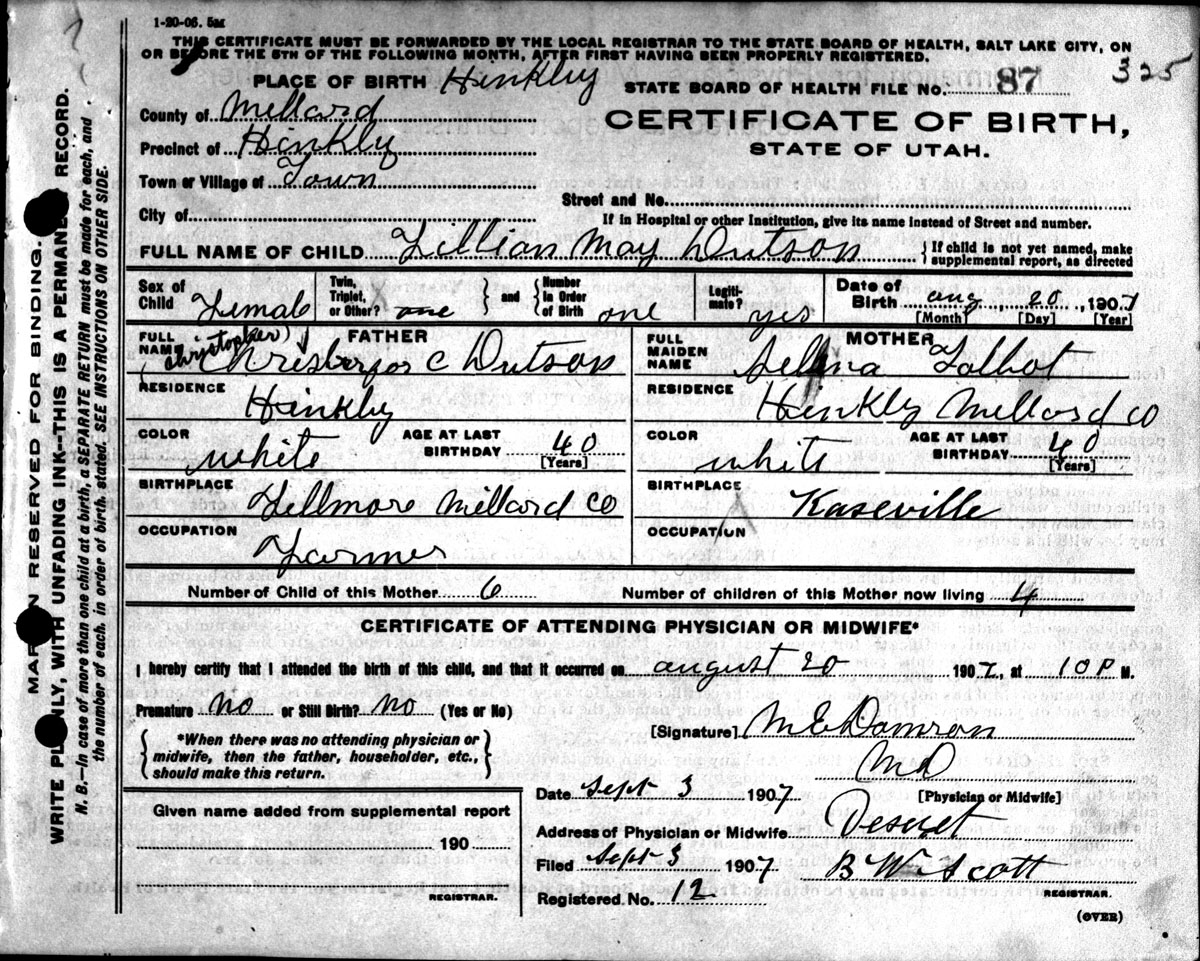 1-20-06. 5M
THIS CERTIFICATE MUST BE FORWARDED BY THE LOCAL REGISTRAR TO THE STATE BOARD OF HEALTH, SALT LAKE CITY, ON
OR BEFORE THE 5TH OF THE FOLLOWING MONTH, AFTER FIRST HAVING BEEN PROPERLY REGISTERED.
325
PLACE OF BIRTH Hinkly
STATE BOARD OF HEALTH FILE No. 87
County of Millard
CERTIFICATE OF BIRTH,
Precinct of Hinkly
STATE OF UTAH.
Town or Village of Town
Street and No.
City of
If in Hospital or other Institution, give its name instead of Street and number.
FULL NAME OF CHILD Lillian May Dutson
{If child is not yet named, make
supplemental report, as directed
Sex of Child Female
Twin, Triplet, or Other? one
} and {
Number in Order of Birth one
Legiti- mate? yes
Date of Birth Aug 20, 1907
[Month] [Day] [Year]
FATHER
FULL NAME (Christopher) Chresterfor C Dutson
MOTHER
FULL MAIDEN NAME Selina Talbot
RESIDENCE Hinkly
RESIDENCE Hinkly Millard Co
COLOR white
AGE AT LAST BIRTHDAY 40
[Years]
COLOR white
AGE AT LAST BIRTHDAY 40
[Years]
BIRTHPLACE Fillmore Millard Co
BIRTHPLACE Kaseville
OCCUPATION Farmer
OCCUPATION
Number of Child of this Mother 6
Number of children of this Mother now living 4
CERTIFICATE OF ATTENDING PHYSICIAN OR MIDWIFE*
I hereby certify that I attended the birth of this child, and that it occurred on August 20 1907, at 10 P M.
Premature No or Still Birth? No (Yes or No)
{*When there was no attending physician or
midwife, then the father, householder, etc.,
should make this return.}
[Signature] M E Damron
MD
[Physician or Midwife]
Date Sept 3 1907
Given name added from supplemental report
190
REGISTRAR.
Address of Physician or Midwife Deseret
Filed Sept 3 1907
B W Scott
REGISTRAR.
Registered No. 12
(OVER)
MARGIN RESERVED FOR BINDING.
WRITE PLAINLY, WITH UNFADING INK--THIS IS A PERMANENT RECORD.
N. B.--In case of more than one child at a birth, a SEPARATE RETURN must be made for each, and
the number of each, in order of birth, stated. SEE INSTRUCTIONS ON OTHER SIDE.